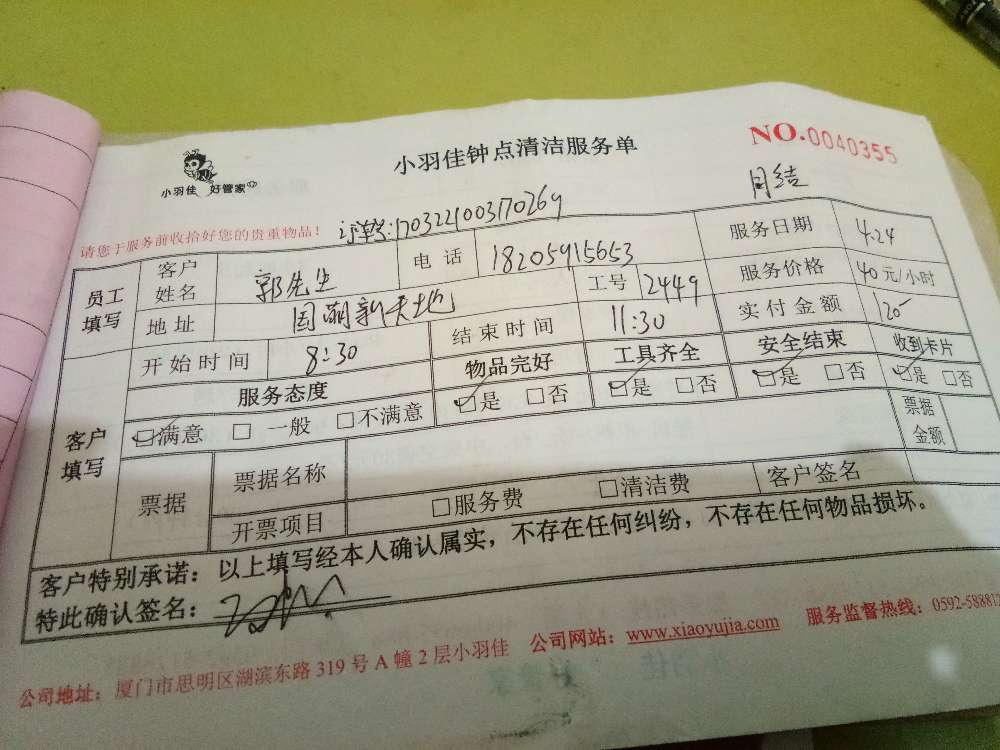 小羽佳钟点清洁服务单
NO.0040355
小羽佳 好管家
月结
请您于服务前收拾好您的贵重物品！
订单号:1703221003170269
员工填写 客户姓名 郭先生 电话 18205915653 服务日期 4.24
地址 国湖新天地 工号 2449 服务价格 40元/小时
客户填写 开始时间 8:30 结束时间 11:30 实付金额 120
服务态度 物品完好 工具齐全 安全结束 收到卡片
满意 一般 不满意 是 否 是 否 是 否 是 否
票据 票据名称 票据金额
开票项目 服务费 清洁费 客户签名
客户特别承诺：以上填写经本人确认属实，不存在任何纠纷，不存在任何物品损坏。
特此确认签名：
公司地址：厦门市思明区湖滨东路319号A幢2层小羽佳 公司网站：www.xiaoyujia.com 服务监督热线：0592-588812